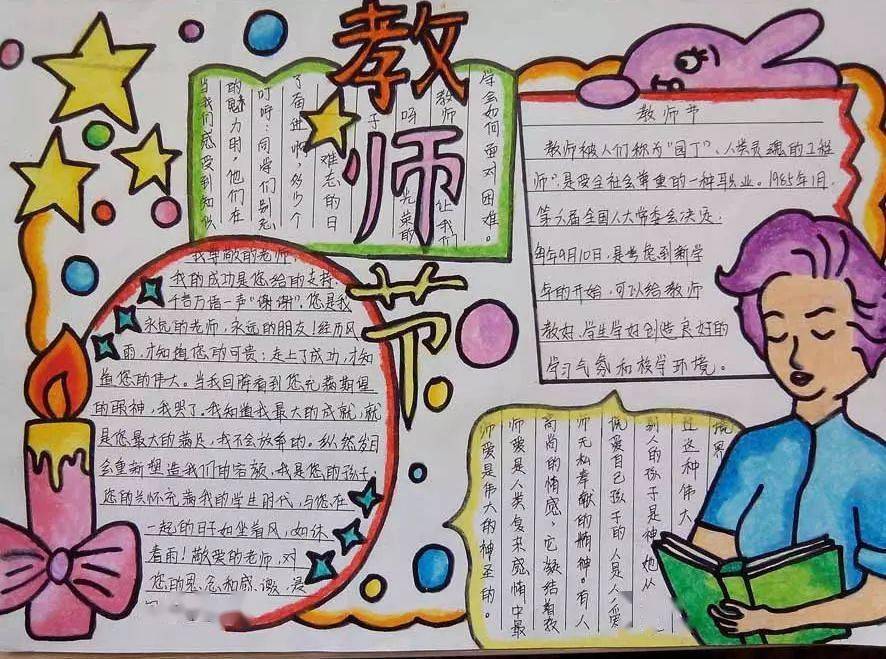 教师节
当我们感受到知识
的魅力时,他们在
叮咛:同学们别忘
了奋进啊,多少个
难忘的日
子
呀 光荣的
教师 让我们
学会如何面对困难。
教师节
教师被人们称为“园丁”、人类灵魂的工程
师”,是受全社会尊重的一种职业。1985年1月,
第六届全国人大常委会决定:
每年9月10日,是考虑到新学
年的开始,可以给教师
教好、学生学好创造良好的
学习气氛和校学环境。
我尊敬的老师
我的成功是您给的支持,
千言万语一声“谢谢”。您是我
永远的老师,永远的朋友!经历风
雨,才知道您的可贵;走上了成功,才知
道您的伟大。当我回眸看到您充满期望
的眼神,我哭了。我知道我最大的成就,就
是您最大的满足,我不会放弃的。纵然岁月
会重新塑造我们的容颜,我是您的孩子;
您的关怀充满我的学生时代,与您在
一起的日子如坐着风,如沐
春雨!敬爱的老师,对
您的思念和感激,是
师爱是伟大的神圣的。
师爱是人类复来感情中最
高尚的情感,它凝结着教
师无私奉献的精神。有人
说爱自己孩子的人是人,爱
别人的孩子是神,她从
过这种伟大